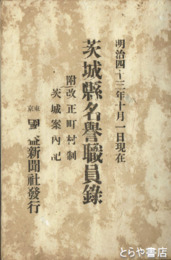 明治四十三年十月一日現在
茨城縣名譽職員錄
附 改正町村制
茨城案内記
東京
新聞社發行
とらや書店